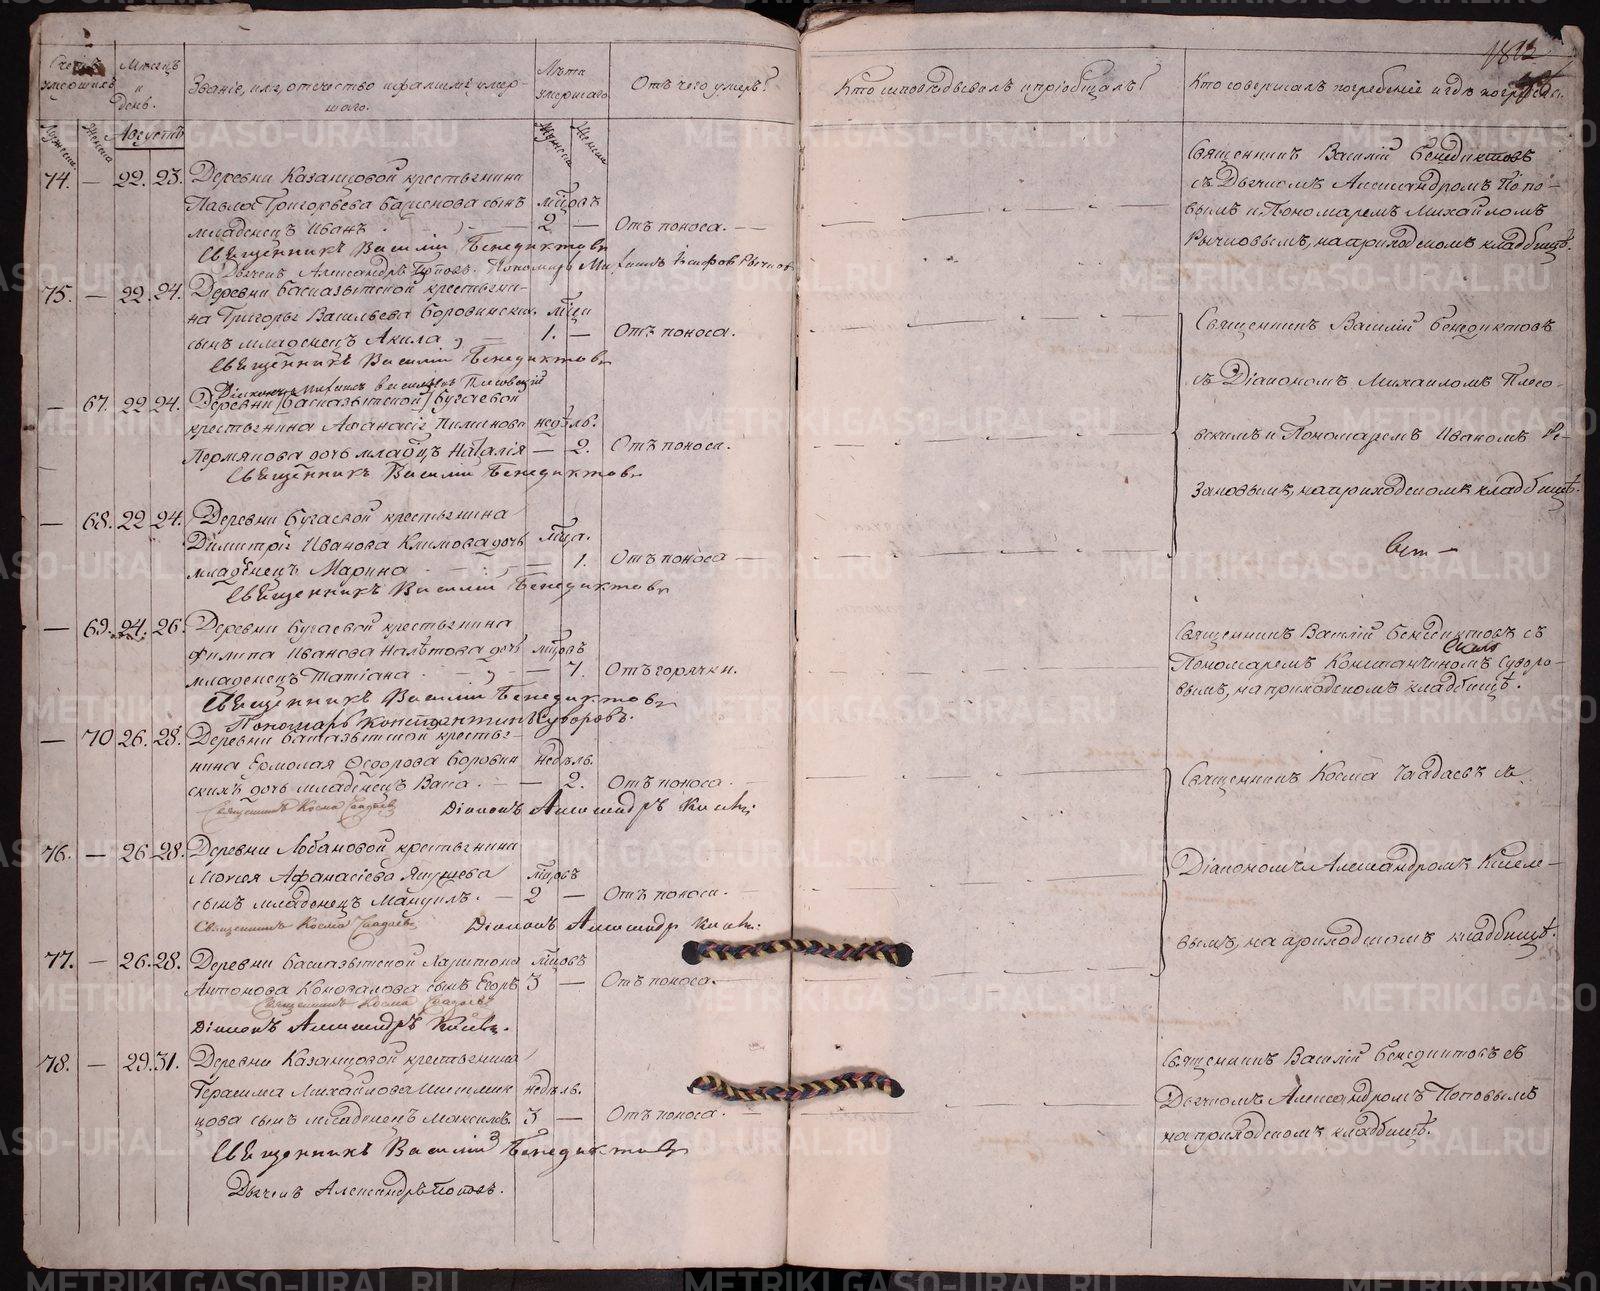 1812
Счетъ умершихъ
Мѣсяцъ и день.
Званіе, имя, отечество и фамилія умер-
шаго.
Лѣта умершаго
Отъ чего умеръ?
Кто исповѣдывалъ и пріобщалъ?
Кто совершалъ погребеніе и гдѣ погребены.
Мужеска Женска
Августъ
Мужеска Женска
74. — 22. 23. Деревни Казанцовой крестьянина
Павла Григорьева сынъ мцовъ
младенецъ Иванъ. 2 — Отъ поноса. —
Священникъ Василій Бенедиктовъ
Дьячекъ Александръ Поповъ. Пономарь
Священникъ Василій Бенедиктовъ
съ Дьячкомъ Александромъ Попо-
вымъ и Пономаремъ Михайломъ
Рычковымъ, на приходскомъ кладбищѣ.
75. — 22. 24. Деревни крестьяни-
на Григорья Васильева Боровинскихъ мца
сынъ младенецъ Акила, 1. — Отъ поноса.
Священникъ Василій Бенедиктовъ
Діаконъ Михаилъ
— 67. 22 24. Деревни Бугаевой
крестьянина Аѳанасія Пименова недѣль.
Пермякова дочь младнцъ Наталія — 2. Отъ поноса.
Священникъ Василій Бенедиктовъ
— 68. 22 24. Деревни Бугаевой крестьянина
Димитрія Иванова Климова дочь мца.
младенецъ Марина — 1. Отъ поноса —
Священникъ Василій Бенедиктовъ
Священникъ Василій Бенедиктовъ
съ Діакономъ Михаиломъ Плесо-
вскимъ и Пономаремъ Иваномъ Ре-
зановымъ, на приходскомъ кладбищѣ.
— 69. 24. 26. Деревни Бугаевой крестьянина
Филипа Иванова дочь мцовъ
младенецъ Татіана. — 7. Отъ горячки.
Священникъ Василій Бенедиктовъ
Пономарь Константинъ Суворовъ.
Священникъ Василій Бенедиктовъ съ
Пономаремъ Константиномъ Суворо-
вымъ, на приходскомъ кладбищѣ.
— 70 26. 28. Деревни крестья-
нина Ермолая Ѳедорова Боровин недѣль.
скихъ дочь младенецъ Васса. — 2. Отъ поноса.
Священникъ Косма Чаадаевъ Діаконъ Александръ Киселевъ
76. — 26 28. Деревни Лобановой крестьянина
Аѳанасіева Якушева мцовъ
сынъ младенецъ Мануилъ. — 2 — Отъ поноса.
Священникъ Косма Чаадаевъ Діаконъ Александръ Киселевъ
77. — 26. 28. Деревни Харитона мцовъ
Антонова Коновалова сынъ Егоръ 3 — Отъ поноса.
Священникъ Косма Чаадаевъ
Діаконъ Александръ Киселевъ.
Священникъ Косма Чаадаевъ съ
Діакономъ Александромъ Кисele-
вымъ, на приходскомъ кладбищѣ.
78. — 29. 31. Деревни Казанцовой крестьянина
Герасима Михайлова недѣль.
сынъ младенецъ Максимъ. 3 — Отъ поноса.
Священникъ Василій Бенедиктовъ
Дьячекъ Александръ Поповъ.
Священникъ Василій Бенедиктовъ съ
Дьячкомъ Александромъ Поповымъ
на приходскомъ кладбищѣ.
METRIKI.GASO-URAL.RU